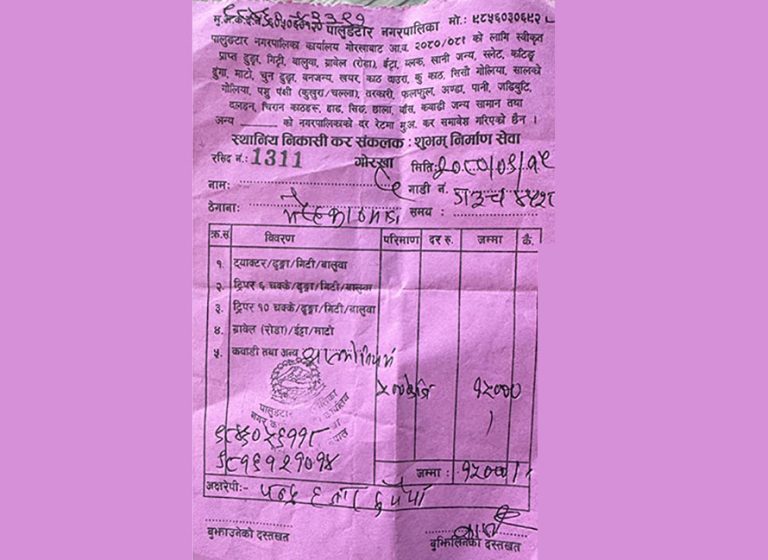 पालुङटार नगरपालिका मो.: ९८५६०३०६९२
पालुङटार नगरपालिका कार्यालय गोरखाबाट आ.व. २०८०/०८१ को लागि स्वीकृत
प्राप्त ढुङ्गा, गिट्टी, बालुवा, ग्रावेल (रोडा), ईंट्टा, ब्लक, खानी जन्य, स्लेट, कटिङ्ग
ढुंगा, माटो, चुन ढुङ्गा, बनजन्य, खयर, काठ दाउरा, कु काठ, सिसौ गोलिया, सालको
गोलिया, पशु पंक्षी (कुखुरा/चल्ला), तरकारी, फलफुल, अण्डा, पानी, जडिबुटि,
दलहन, चिरान काठहरू, हाड, सिङ, छाला, बाँस, कवाडी जन्य सामान तथा
अन्य को नगरपालिकाको दर रेटमा मु.अ. कर समावेश गरिएको छैन ।
स्थानिय निकासी कर संकलक : शुभम् निर्माण सेवा
रसिद नं.: 1311 गोरखा मिति:
नाम: गाडी नं.
ठेगाना: समय :
क्र.सं. विवरण परिमाण दर रु. जम्मा कै.
१. ट्याक्टर/ढुङ्गा/गिटी/बालुवा
२. ट्रिपर ६ चक्के/ढुङ्गा/गिटी/बालुवा
३. ट्रिपर १० चक्के/ढुङ्गा/गिटी/बालुवा
४. ग्रावेल (रोडा)/ईंट्टा/माटो
५. कवाडी तथा अन्य
१५०००
पालुङटार
जम्मा : १५०००
अक्षरेपी:- पन्ध्र हजार रुपैयाँ
बुझाउनेको दस्तखत बुझिलिनेको दस्तखत